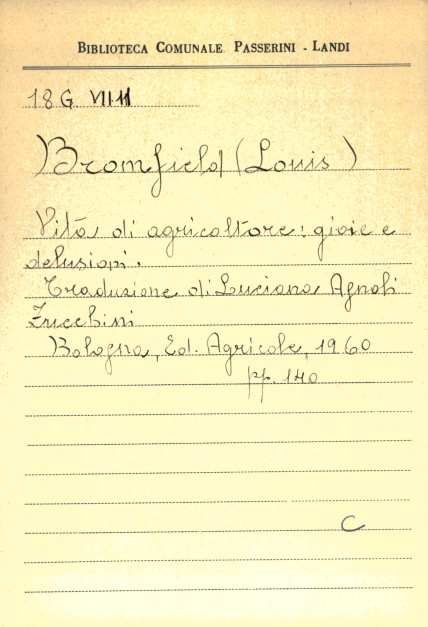 BIBLIOTECA COMUNALE PASSERINI - LANDI
18 G VII 11
Bromfield (Louis)
Vita di agricoltore: gioie e
delusioni.
Traduzione di Luciana Agnoli
Zucchini
Bologna, Ed. Agricole, 1960
pp. 140
C